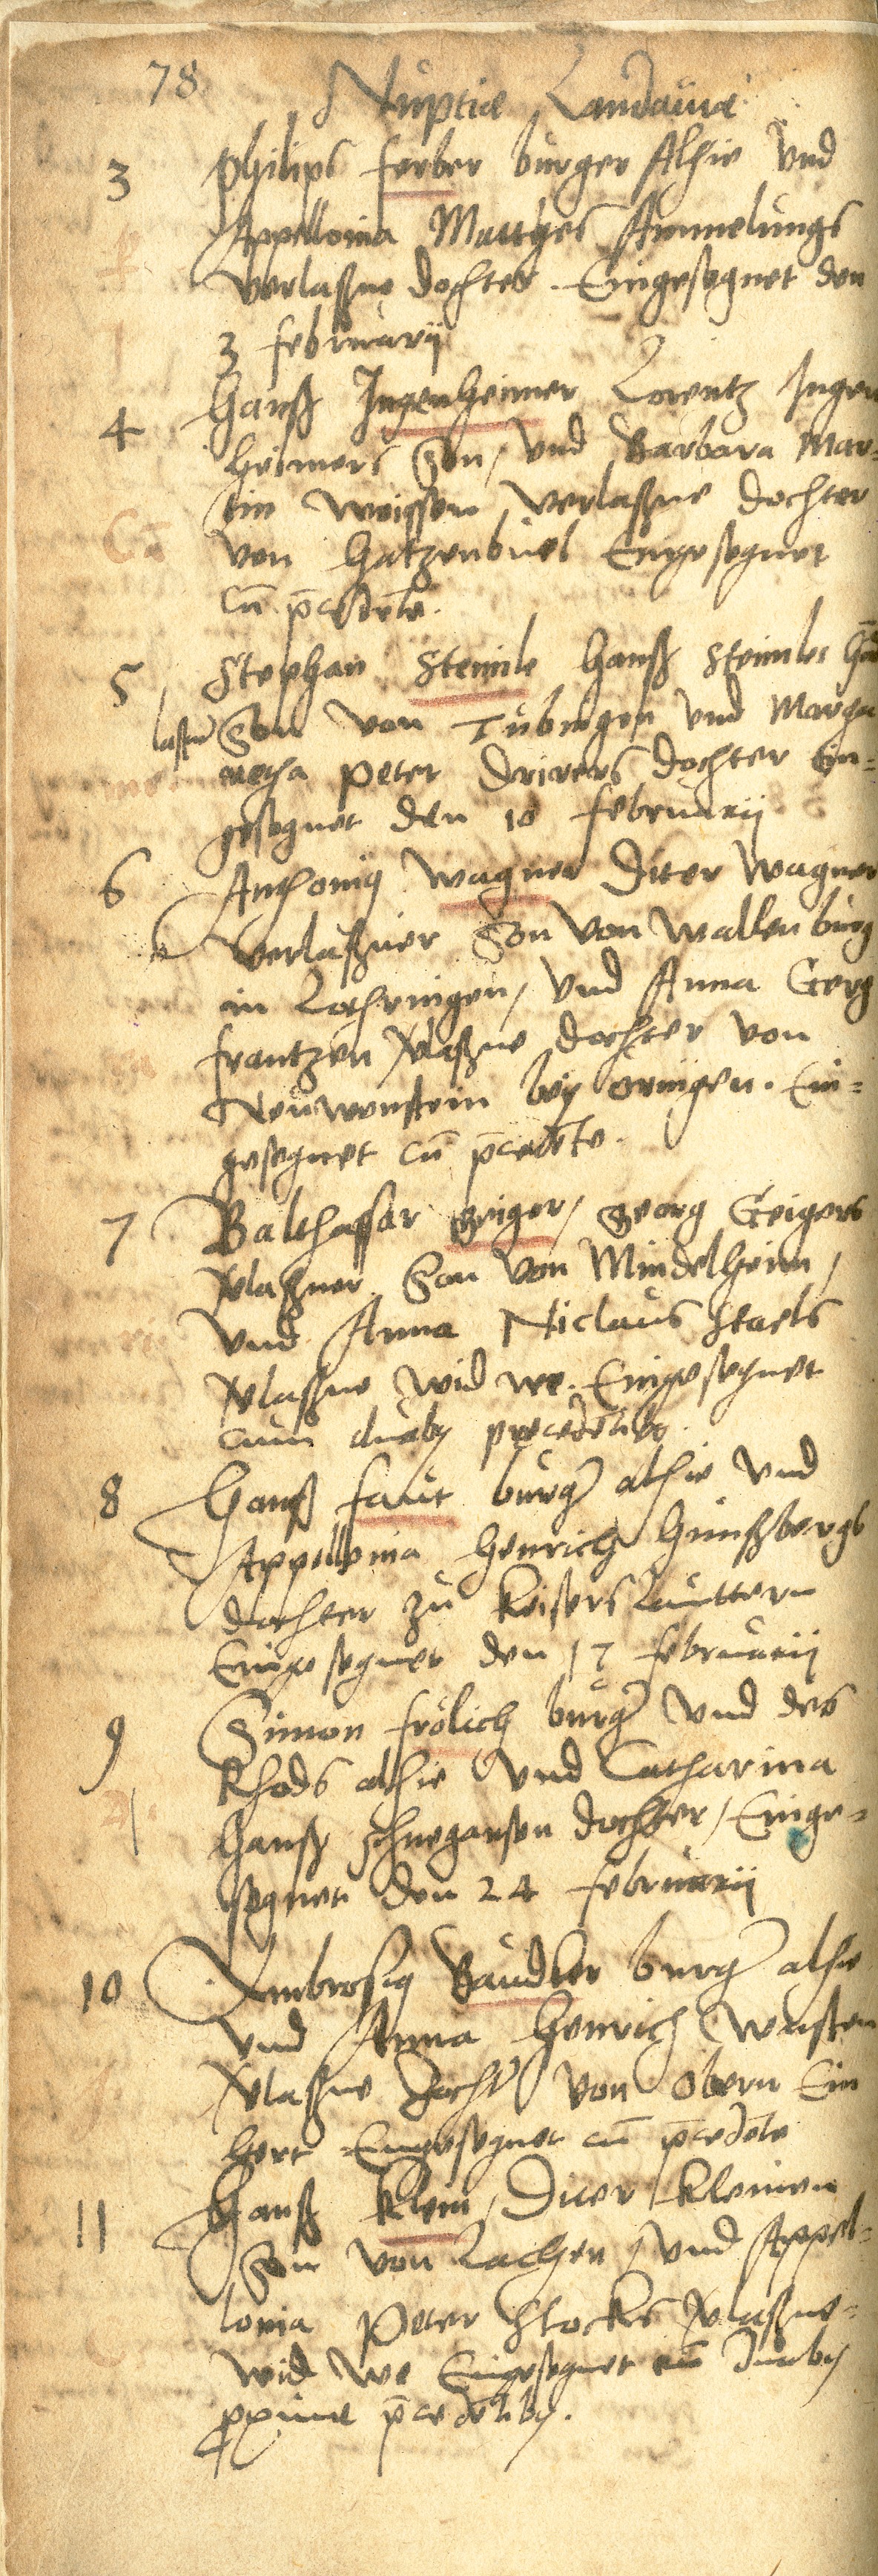 78
Nuptiae Landauiae
3 Philips ferber burger Alhie vnd
Appellonia Mattges Ammelungs
verlaßne dochter. Eingesegnet den
3 februarij
4 Hanß Ingenheimer Lorentz Ingen
heimers Son, vnd Barbara Mar-
tin Weissen verlaßne dochter
von Hatzenbuel Eingesegnet
cū p̄cedēte.
5 Stephan Steinle Hanß Steinles
Son von Tübingen vnd Marga
retha Peter Drirers dochter Ein-
gesegnet den 10 februarij
6 Anthonig Wagner Diter Wagner
verlaßner Son von Wallenburg
in Lothringen, vnd Anna Gerg
frantzen vlaßne dochter von
Neuwenstein bey Oringen. Ein-
gesegnet cū p̄cedēte.
7 Balthassar geiger, georg Geigers
vlaßner Son von Mindelheim,
vnd Anna Niclaus Staels
vlaßne widwe. Eingesegnet
cum duaby precedētiby.
8 Hanß faut burger alhie vnd
Appellonia Henrich Hunßbergs
dochter zu Keiserslauttern
Eingesegnet den 17 februarij
9 Simon frölich burger vnd des
Rhods alhie vnd Catharina
Hanß schnegansen dochter, Einge-
segnet den 24 februarij
10 Ambrosig Baudter burger alhie
vnd Anna Henrich Wusten
vlaßne dochter von Obern Ein
hert Eingesegnet cū p̄cedēte
11 Hanß Klein, Diter Kleinen
Son von Lachen, vnd Appel-
lonia Peter Stockes vlaßne-
widwe Eingesegnet cū duaby
pxime p̄cedētiby.